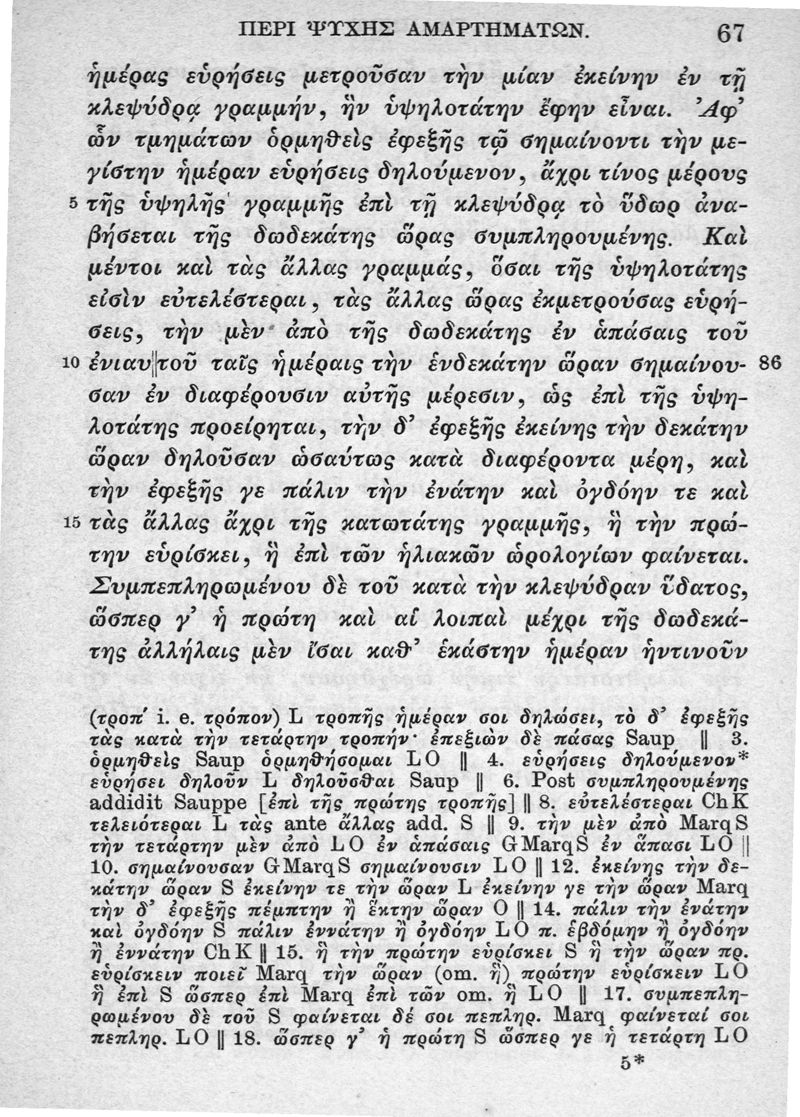 ΠΕΡΙ ΨΥΧΗΣ ΑΜΑΡΤΗΜΑΤΩΝ. 67
ἡμέρας εὑρήσεις μετροῦσαν τὴν μίαν ἐκείνην ἐν τῇ
κλεψύδρᾳ γραμμήν, ἣν ὑψηλοτάτην ἔφην εἶναι. Ἀφ’
ὧν τμημάτων ὁρμηθεὶς ἐφεξῆς τῷ σημαίνοντι τὴν με-
γίστην ἡμέραν εὑρήσεις δηλούμενον, ἄχρι τίνος μέρους
5 τῆς ὑψηλῆς γραμμῆς ἐπὶ τῇ κλεψύδρᾳ τὸ ὕδωρ ἀνα-
βήσεται τῆς δωδεκάτης ὥρας συμπληρουμένης. Καὶ
μέντοι καὶ τὰς ἄλλας γραμμάς, ὅσαι τῆς ὑψηλοτάτης
εἰσὶν εὐτελέστεραι, τὰς ἄλλας ὥρας ἐκμετρούσας εὑρή-
σεις, τὴν μὲν ἀπὸ τῆς δωδεκάτης ἐν ἁπάσαις τοῦ
10 ἐνιαυ||τοῦ ταῖς ἡμέραις τὴν ἑνδεκάτην ὥραν σημαίνου- 86
σαν ἐν διαφέρουσιν αὐτῆς μέρεσιν, ὡς ἐπὶ τῆς ὑψη-
λοτάτης προείρηται, τὴν δ’ ἐφεξῆς ἐκείνης τὴν δεκάτην
ὥραν δηλοῦσαν ὡσαύτως κατὰ διαφέροντα μέρη, καὶ
τὴν ἐφεξῆς γε πάλιν τὴν ἐνάτην καὶ ὀγδόην τε καὶ
15 τὰς ἄλλας ἄχρι τῆς κατωτάτης γραμμῆς, ἣ τὴν πρώ-
την εὑρίσκει, ἣ ἐπὶ τῶν ἡλιακῶν ὡρολογίων φαίνεται.
Συμπεπληρωμένου δὲ τοῦ κατὰ τὴν κλεψύδραν ὕδατος,
ὥσπερ γ’ ἡ πρώτη καὶ αἱ λοιπαὶ μέχρι τῆς δωδεκά-
της ἀλλήλαις μὲν ἴσαι καθ’ ἑκάστην ἡμέραν ἡντινοῦν
(τροπ′ i. e. τρόπον) L τροπῆς ἡμέραν σοι δηλώσει, τὸ δ’ ἐφεξῆς
τὰς κατὰ τὴν τετάρτην τροπήν· ἐπεξιὼν δὲ πάσας Saup || 3.
ὁρμηθεὶς Saup ὁρμηθήσομαι LO || 4. εὑρήσεις δηλούμενον*
εὑρήσει δηλοῦν L δηλοῦσθαι Saup || 6. Post συμπληρουμένης
addidit Sauppe [ἐπὶ τῆς πρώτης τροπῆς] || 8. εὐτελέστεραι ChK
τελειότεραι L τὰς ante ἄλλας add. S || 9. τὴν μὲν ἀπὸ MarqS
τὴν τετάρτην μὲν ἀπὸ LO ἐν ἁπάσαις GMarqS ἐν ἅπασι LO ||
10. σημαίνουσαν GMarqS σημαίνουσιν LO || 12. ἐκείνης τὴν δε-
κάτην ὥραν S ἐκείνην τε τὴν ὥραν L ἐκείνην γε τὴν ὥραν Marq
τὴν δ’ ἐφεξῆς πέμπτην ἢ ἕκτην ὥραν O || 14. πάλιν τὴν ἐνάτην
καὶ ὀγδόην S πάλιν ἐννάτην ἢ ὀγδόην LO π. ἑβδόμην ἢ ὀγδόην
ἢ ἐννάτην ChK || 15. ἣ τὴν πρώτην εὑρίσκει S ἢ τὴν ὥραν πρ.
εὑρίσκειν ποιεῖ Marq τὴν ὥραν (om. ἢ) πρώτην εὑρίσκειν LO
ἣ ἐπὶ S ὥσπερ ἐπὶ Marq ἐπὶ τῶν om. ἣ LO || 17. συμπεπλη-
ρωμένου δὲ τοῦ S φαίνεται δέ σοι πεπληρ. Marq φαίνεταί σοι
πεπληρ. LO || 18. ὥσπερ γ’ ἡ πρώτη S ὥσπερ γε ἡ τετάρτη LO
5*